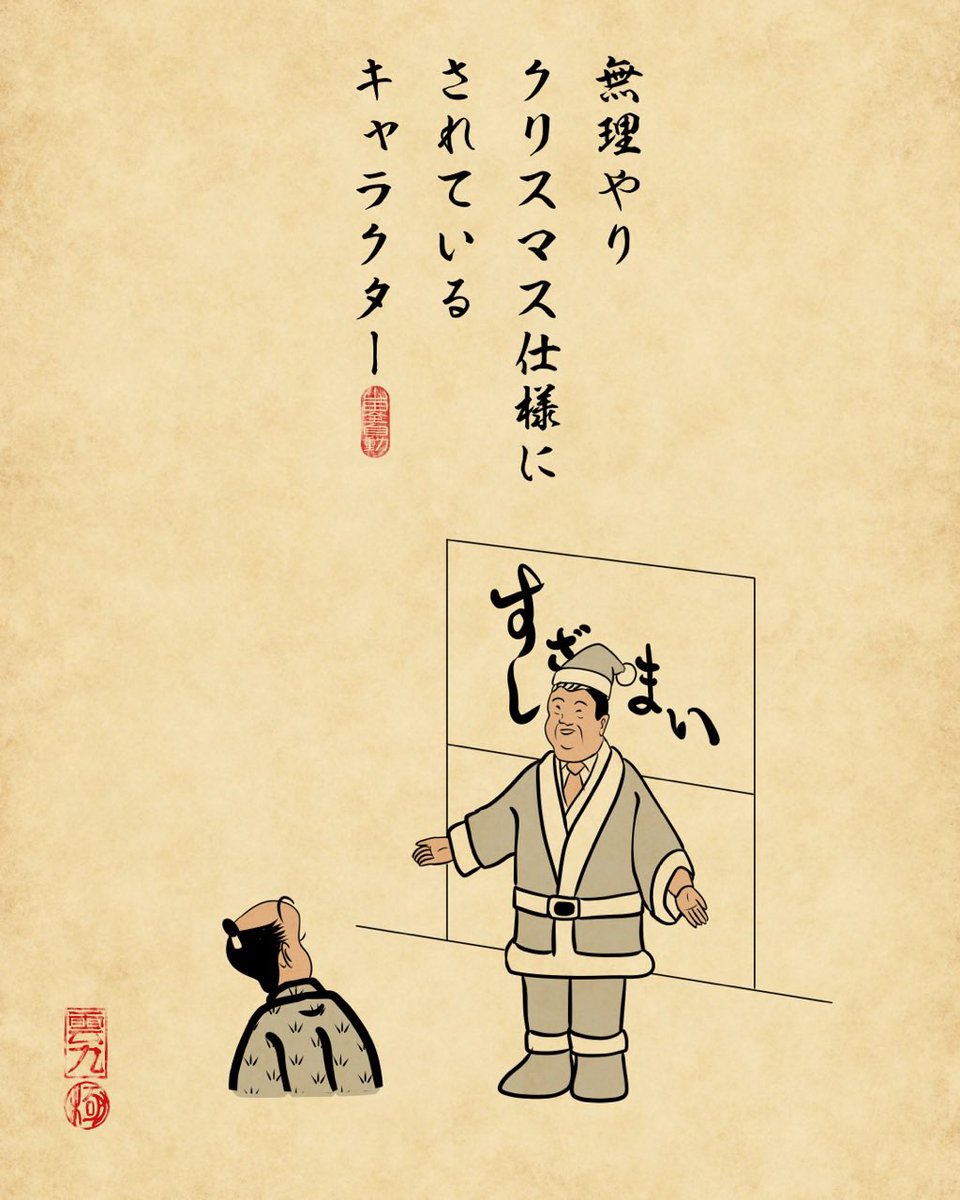 無理やり
クリスマス仕様に
されている
キャラクター
すしざまい